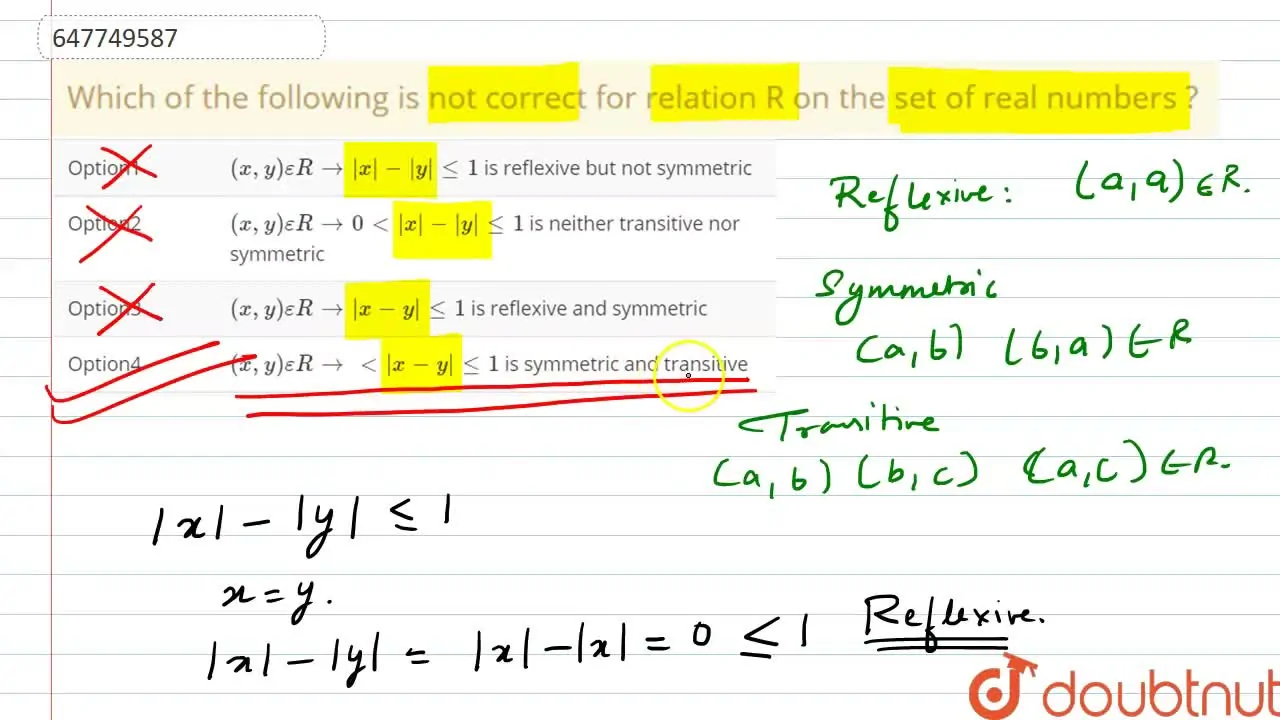 647749587
Which of the following is not correct for relation R on the set of real numbers ?
Option1 (x, y)εR → |x| − |y| ≤ 1 is reflexive but not symmetric
Option2 (x, y)εR → 0 < |x| − |y| ≤ 1 is neither transitive nor
symmetric
Option3 (x, y)εR → |x − y| ≤ 1 is reflexive and symmetric
Option4 (x, y)εR → < |x − y| ≤ 1 is symmetric and transitive
Reflexive: (a,a) ∈ R.
Symmetric
(a,b) (b,a) ∈ R
Transitive
(a,b) (b,c) (a,c) ∈ R.
|x| − |y| ≤ 1
x = y.
|x| − |y| = |x| − |x| = 0 ≤ 1 Reflexive.
doubtnut